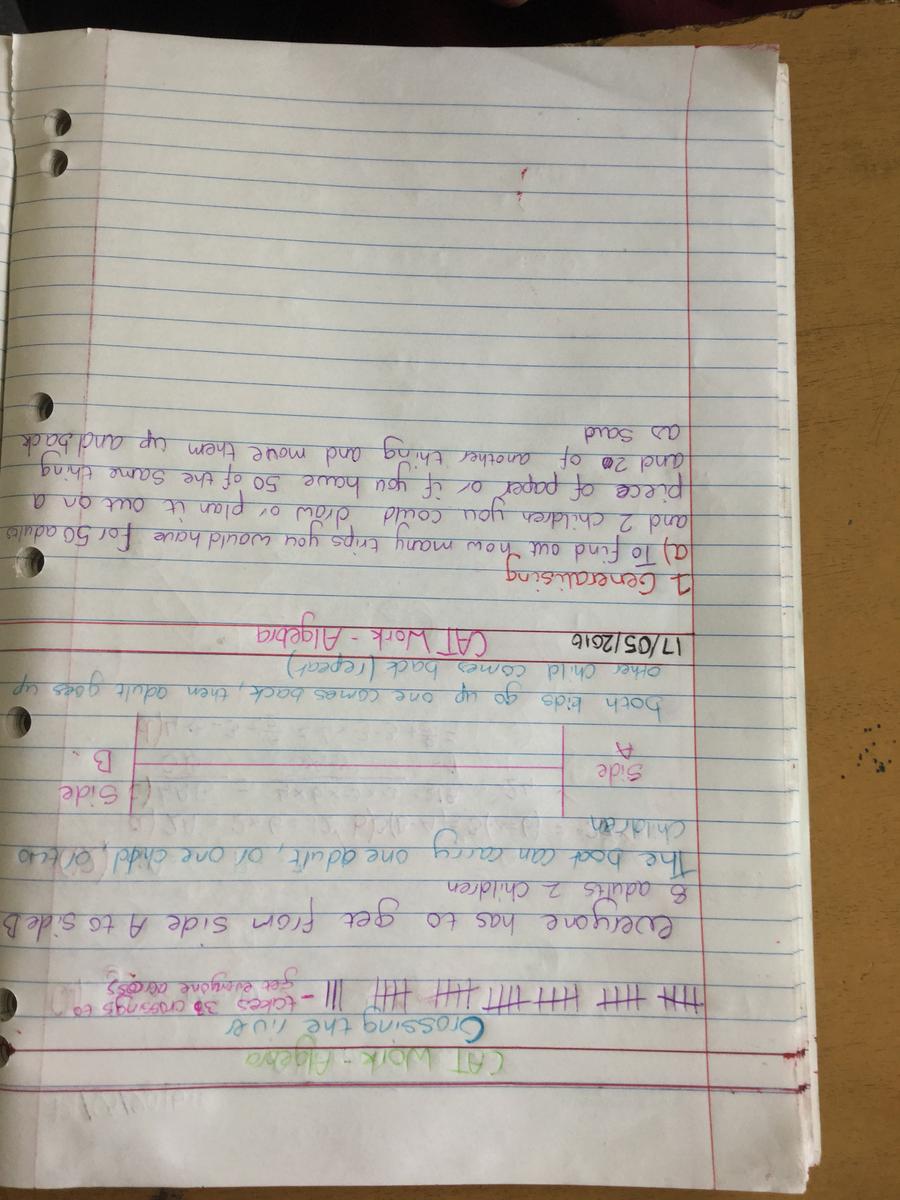 CAT Work - Algebra
Crossing the river
- takes 3 crossings to
get everyone across
everyone has to get from side A to side B
8 adults 2 children
The boat can carry one adult, or one child, or two
children
Side
A
Side
B.
both kids go up one comes back, then adult goes up
other child comes back (repeat)
17/05/2016 CAT Work - Algebra
1 Generalising
a) To find out how many trips you would have for 50 adults
and 2 children you could draw or plan it out on a
piece of paper or if you have 50 of the same thing
and 2 of another thing and move them up and back
as said